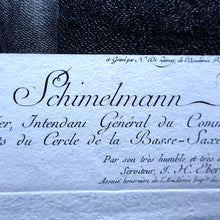 et Gravé par N. De Launay, de l'Academie
Schimelmann
er, Intendant Général du Comm
s du Cercle de la Basse-Saxe
Par son très humble et très
Serviteur, J. H. Eber
Associé honoraire de l'Académie Imp